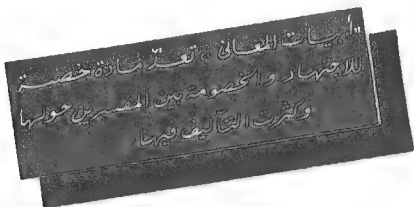 "أبيات المعاني" تعدّ مادة خصبة
للاجتهاد والخصومة بين المفسرين حولها
وكثرت التآليف فيها